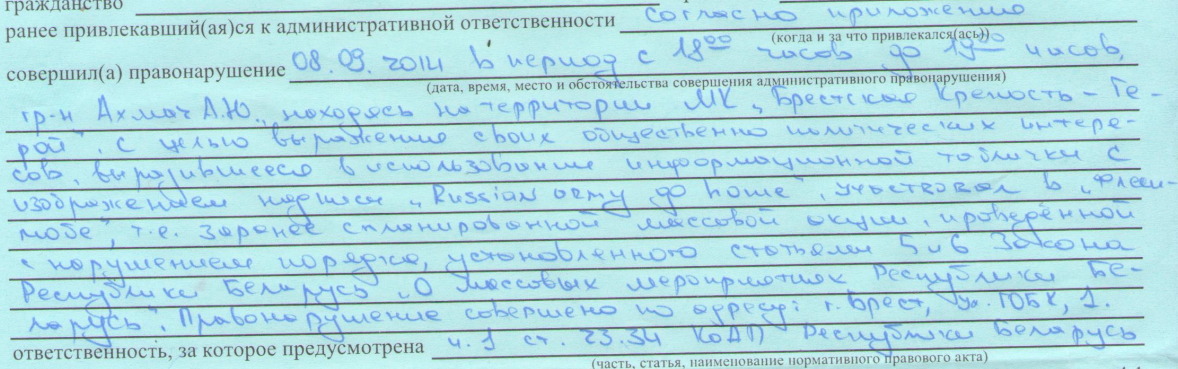 гражданство
ранее привлекавший(ая)ся к административной ответственности согласно приложению
(когда и за что привлекался(ась))
совершил(а) правонарушение 08.09.2014 в период с 18⁰⁰ часов до 19⁰⁰ часов,
(дата, время, место и обстоятельства совершения административного правонарушения)
гр-н Ахмач А.Ю., находясь на территории МК „Брестская Крепость – Ге-
рой", с целью выражения своих общественно политических интере-
сов, выразившееся в использование информационной таблички с
изображением надписи „Russian army go home", участвовал в „флеш-
мобе", т.е. заранее спланированной массовой акции, проведённой
с нарушением порядка, установленного статьями 5 и 6 Закона
Республики Беларусь „О массовых мероприятиях Республики Бе-
ларусь". Правонарушение совершено по адресу: г. Брест, ул. ГОБК, 1.
ответственность, за которое предусмотрена ч. 1 ст. 23.34 КоАП Республики Беларусь
(часть, статья, наименование нормативного правового акта)